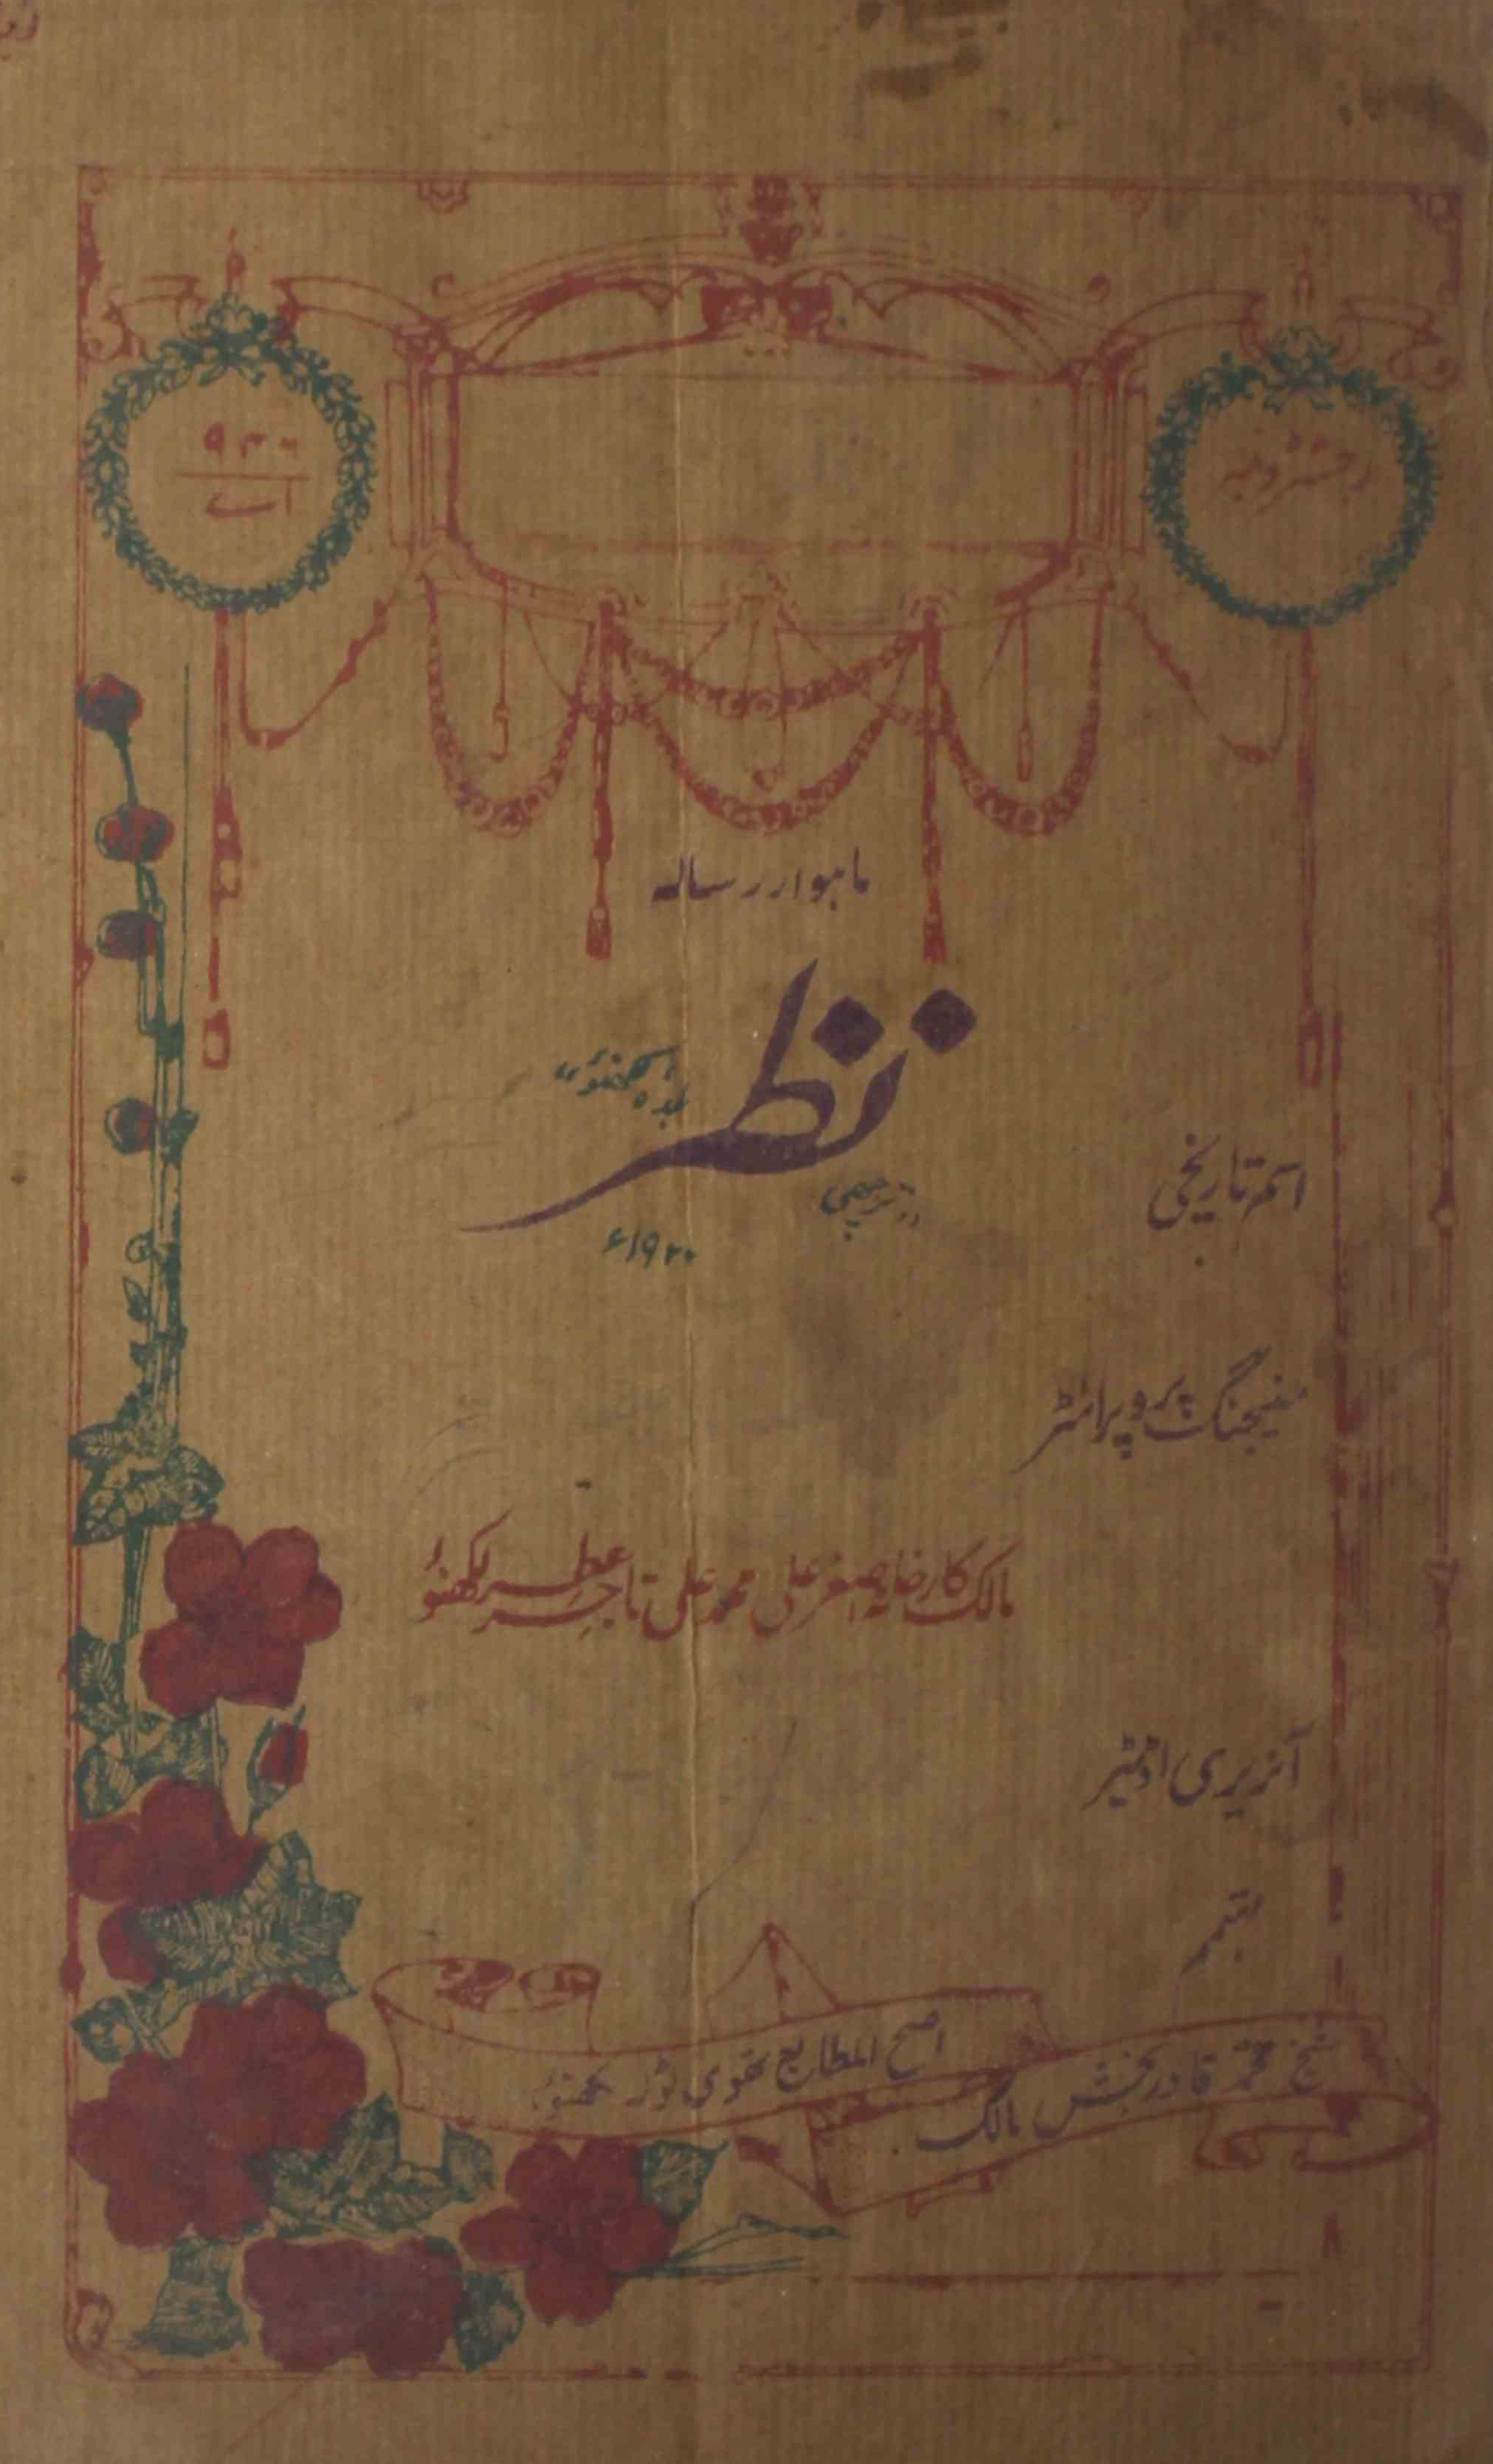 رجسٹرڈ نمبر
۹۳۰
اے
ماہوار رسالہ
نظر
بلدہ لکھنؤ
۱۹۲۰ء
اسم تاریخی
منیجنگ پروپرائٹر
مالک کارخانہ اصغر علی محمد علی تاجر عطر لکھنؤ
آنریری اڈیٹر
بہتمم
شیخ محمد قادر بخش مالک
اصح المطابع تھوی ٹولہ لکھنؤ